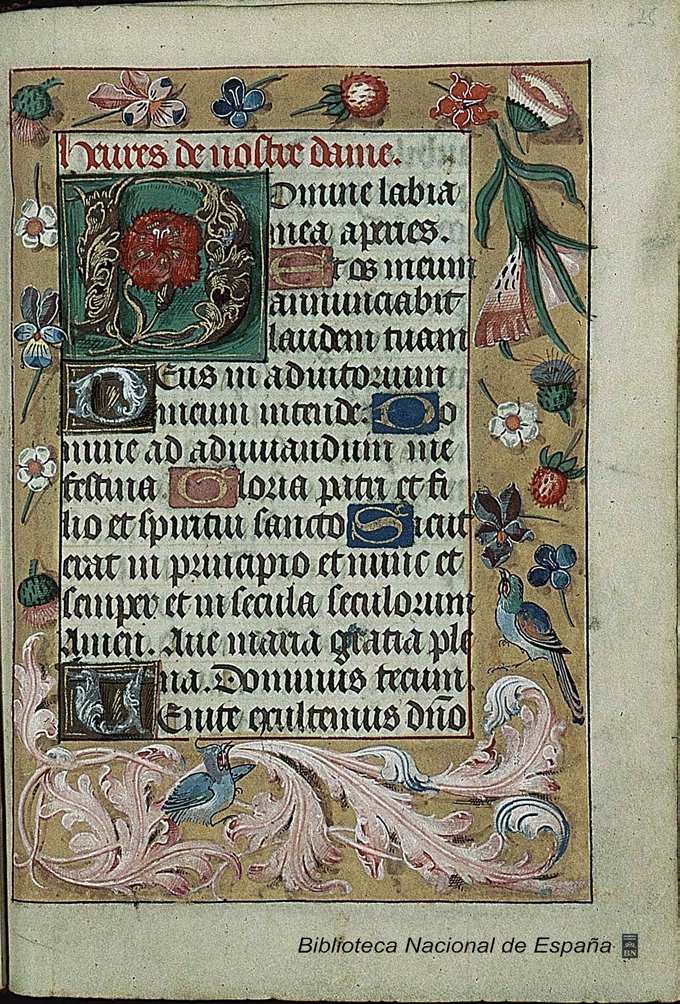 25
heures de nostre dame.
Domine labia
mea aperies.
Et os meum
annunciabit
laudem tuam
Deus in adiutorium
meum intende. Do
mine ad adiuuandum me
festina. Gloria patri et fi
lio et spiritui sancto Sicut
erat in principio et nunc et
semper et in secula seculorum
Amen. Aue maria gratia ple
na. Dominus tecum.
Uenite exultemus dño
Biblioteca Nacional de España
BN